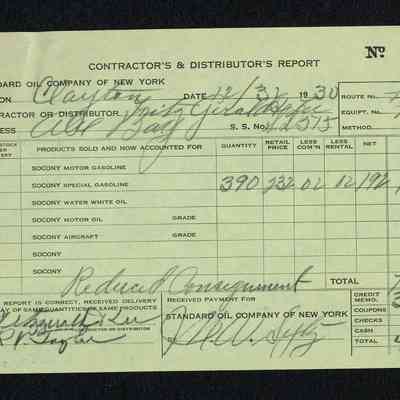 CONTRACTOR'S & DISTRIBUTOR'S REPORT Nº
DARD OIL COMPANY OF NEW YORK
ION Clayton DATE 12/31 1930 ROUTE NO.
RACTOR OR DISTRIBUTOR EQUIPT. NO.
ESS Bay S. S. No. METHOD
STOCK PRODUCTS SOLD AND NOW ACCOUNTED FOR QUANTITY RETAIL PRICE LESS COM'N LESS RENTAL NET
SOCONY MOTOR GASOLINE
SOCONY SPECIAL GASOLINE 390 232 02 12 192
SOCONY WATER WHITE OIL
SOCONY MOTOR OIL GRADE
SOCONY AIRCRAFT GRADE
SOCONY
SOCONY
Reduced Consignment TOTAL
REPORT IS CORRECT, RECEIVED DELIVERY
DAY OF SAME QUANTITIES OF SAME PRODUCTS
RECEIVED PAYMENT FOR
STANDARD OIL COMPANY OF NEW YORK
OR DISTRIBUTOR
CREDIT MEMO.
COUPONS
CHECKS
CASH
TOTAL